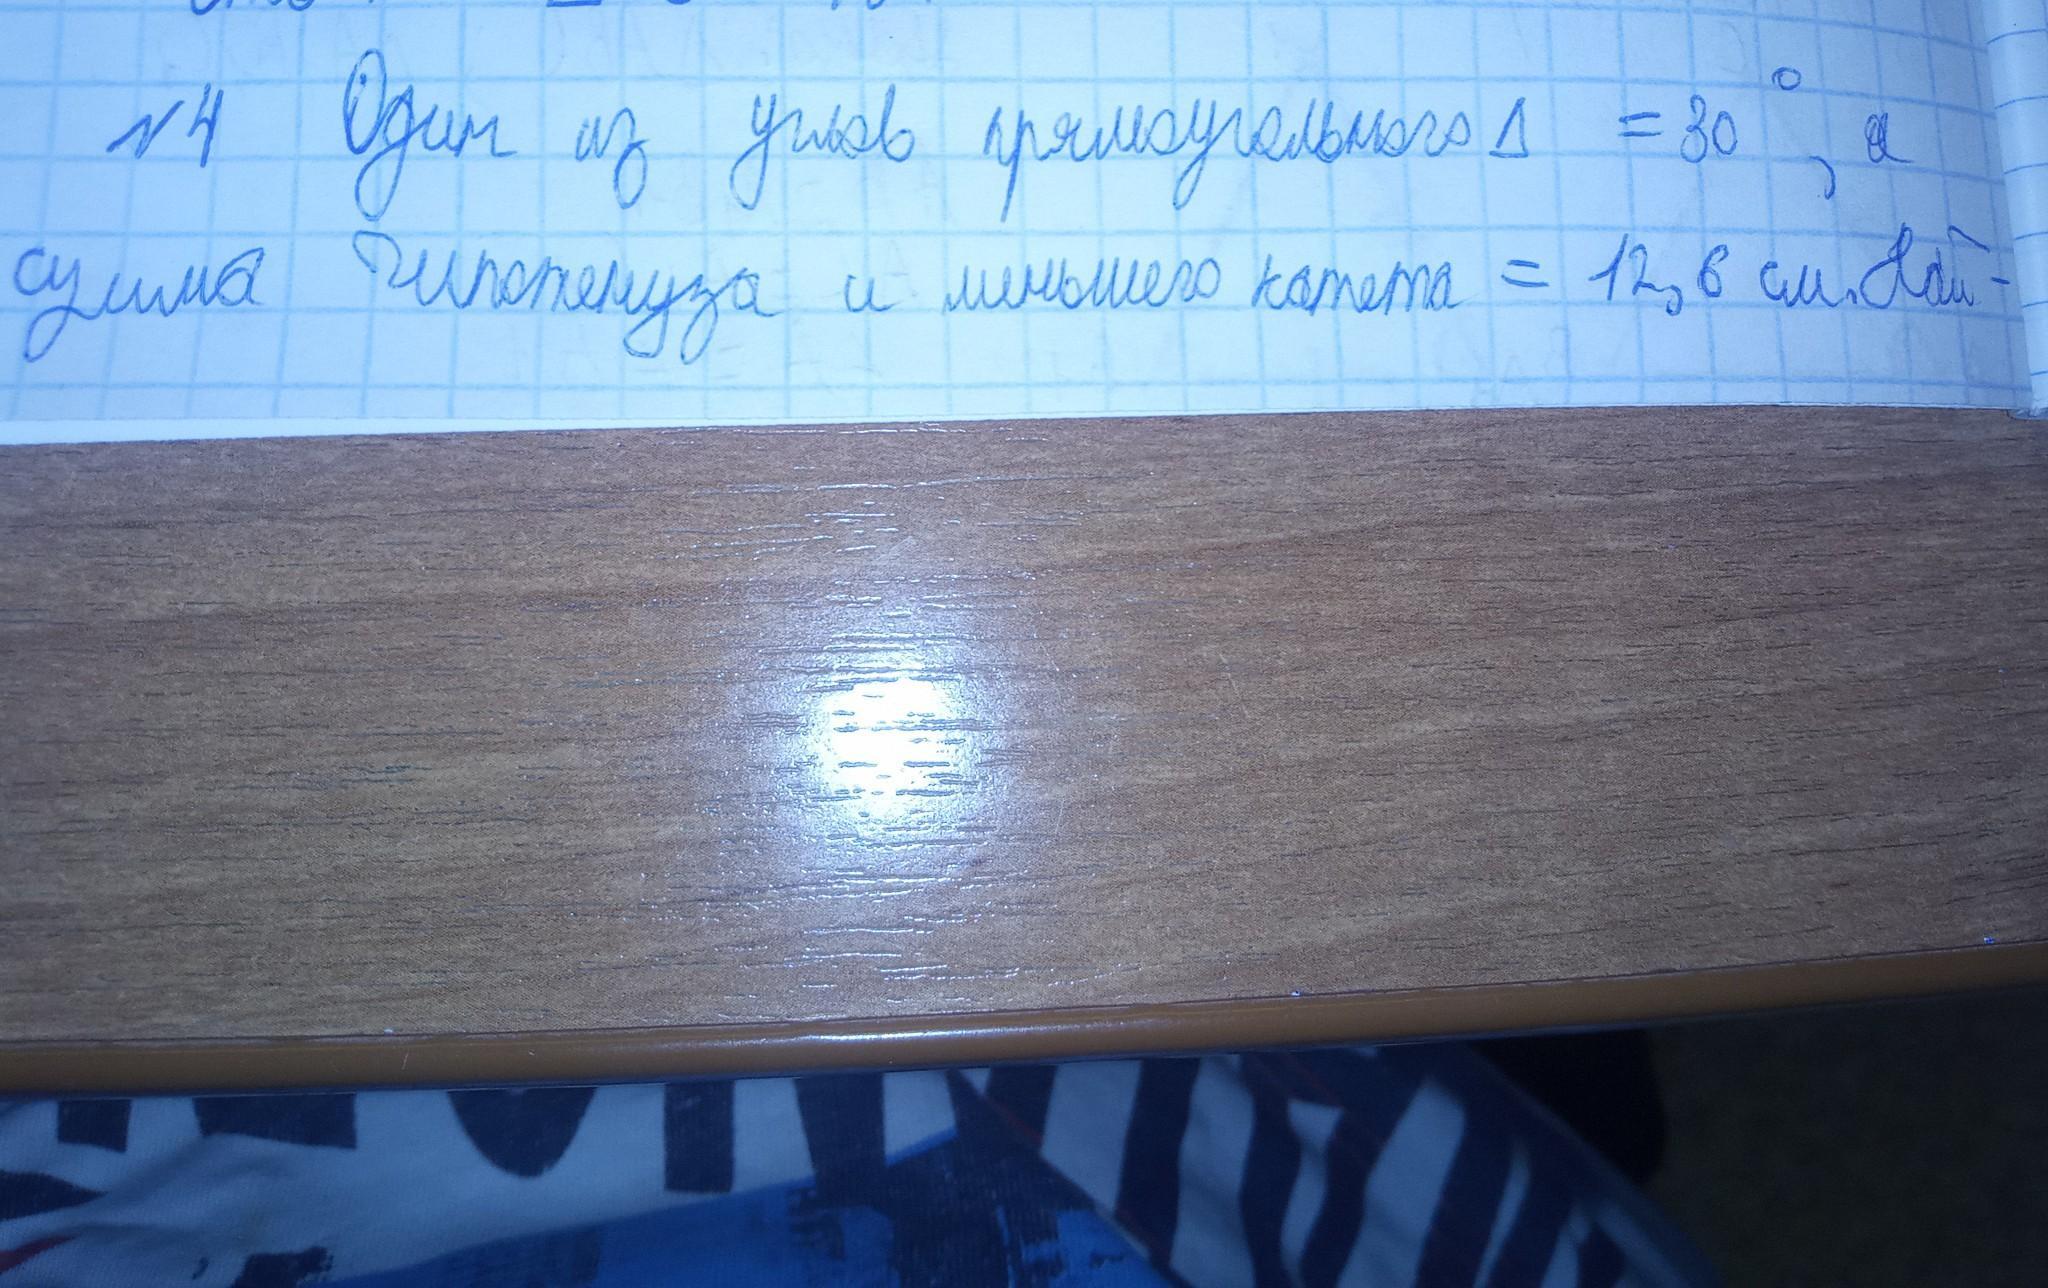 №4 Один из углов прямоугольного Δ = 30°, а
сумма гипотенуза и меньшего катета = 12,6 см. Най-